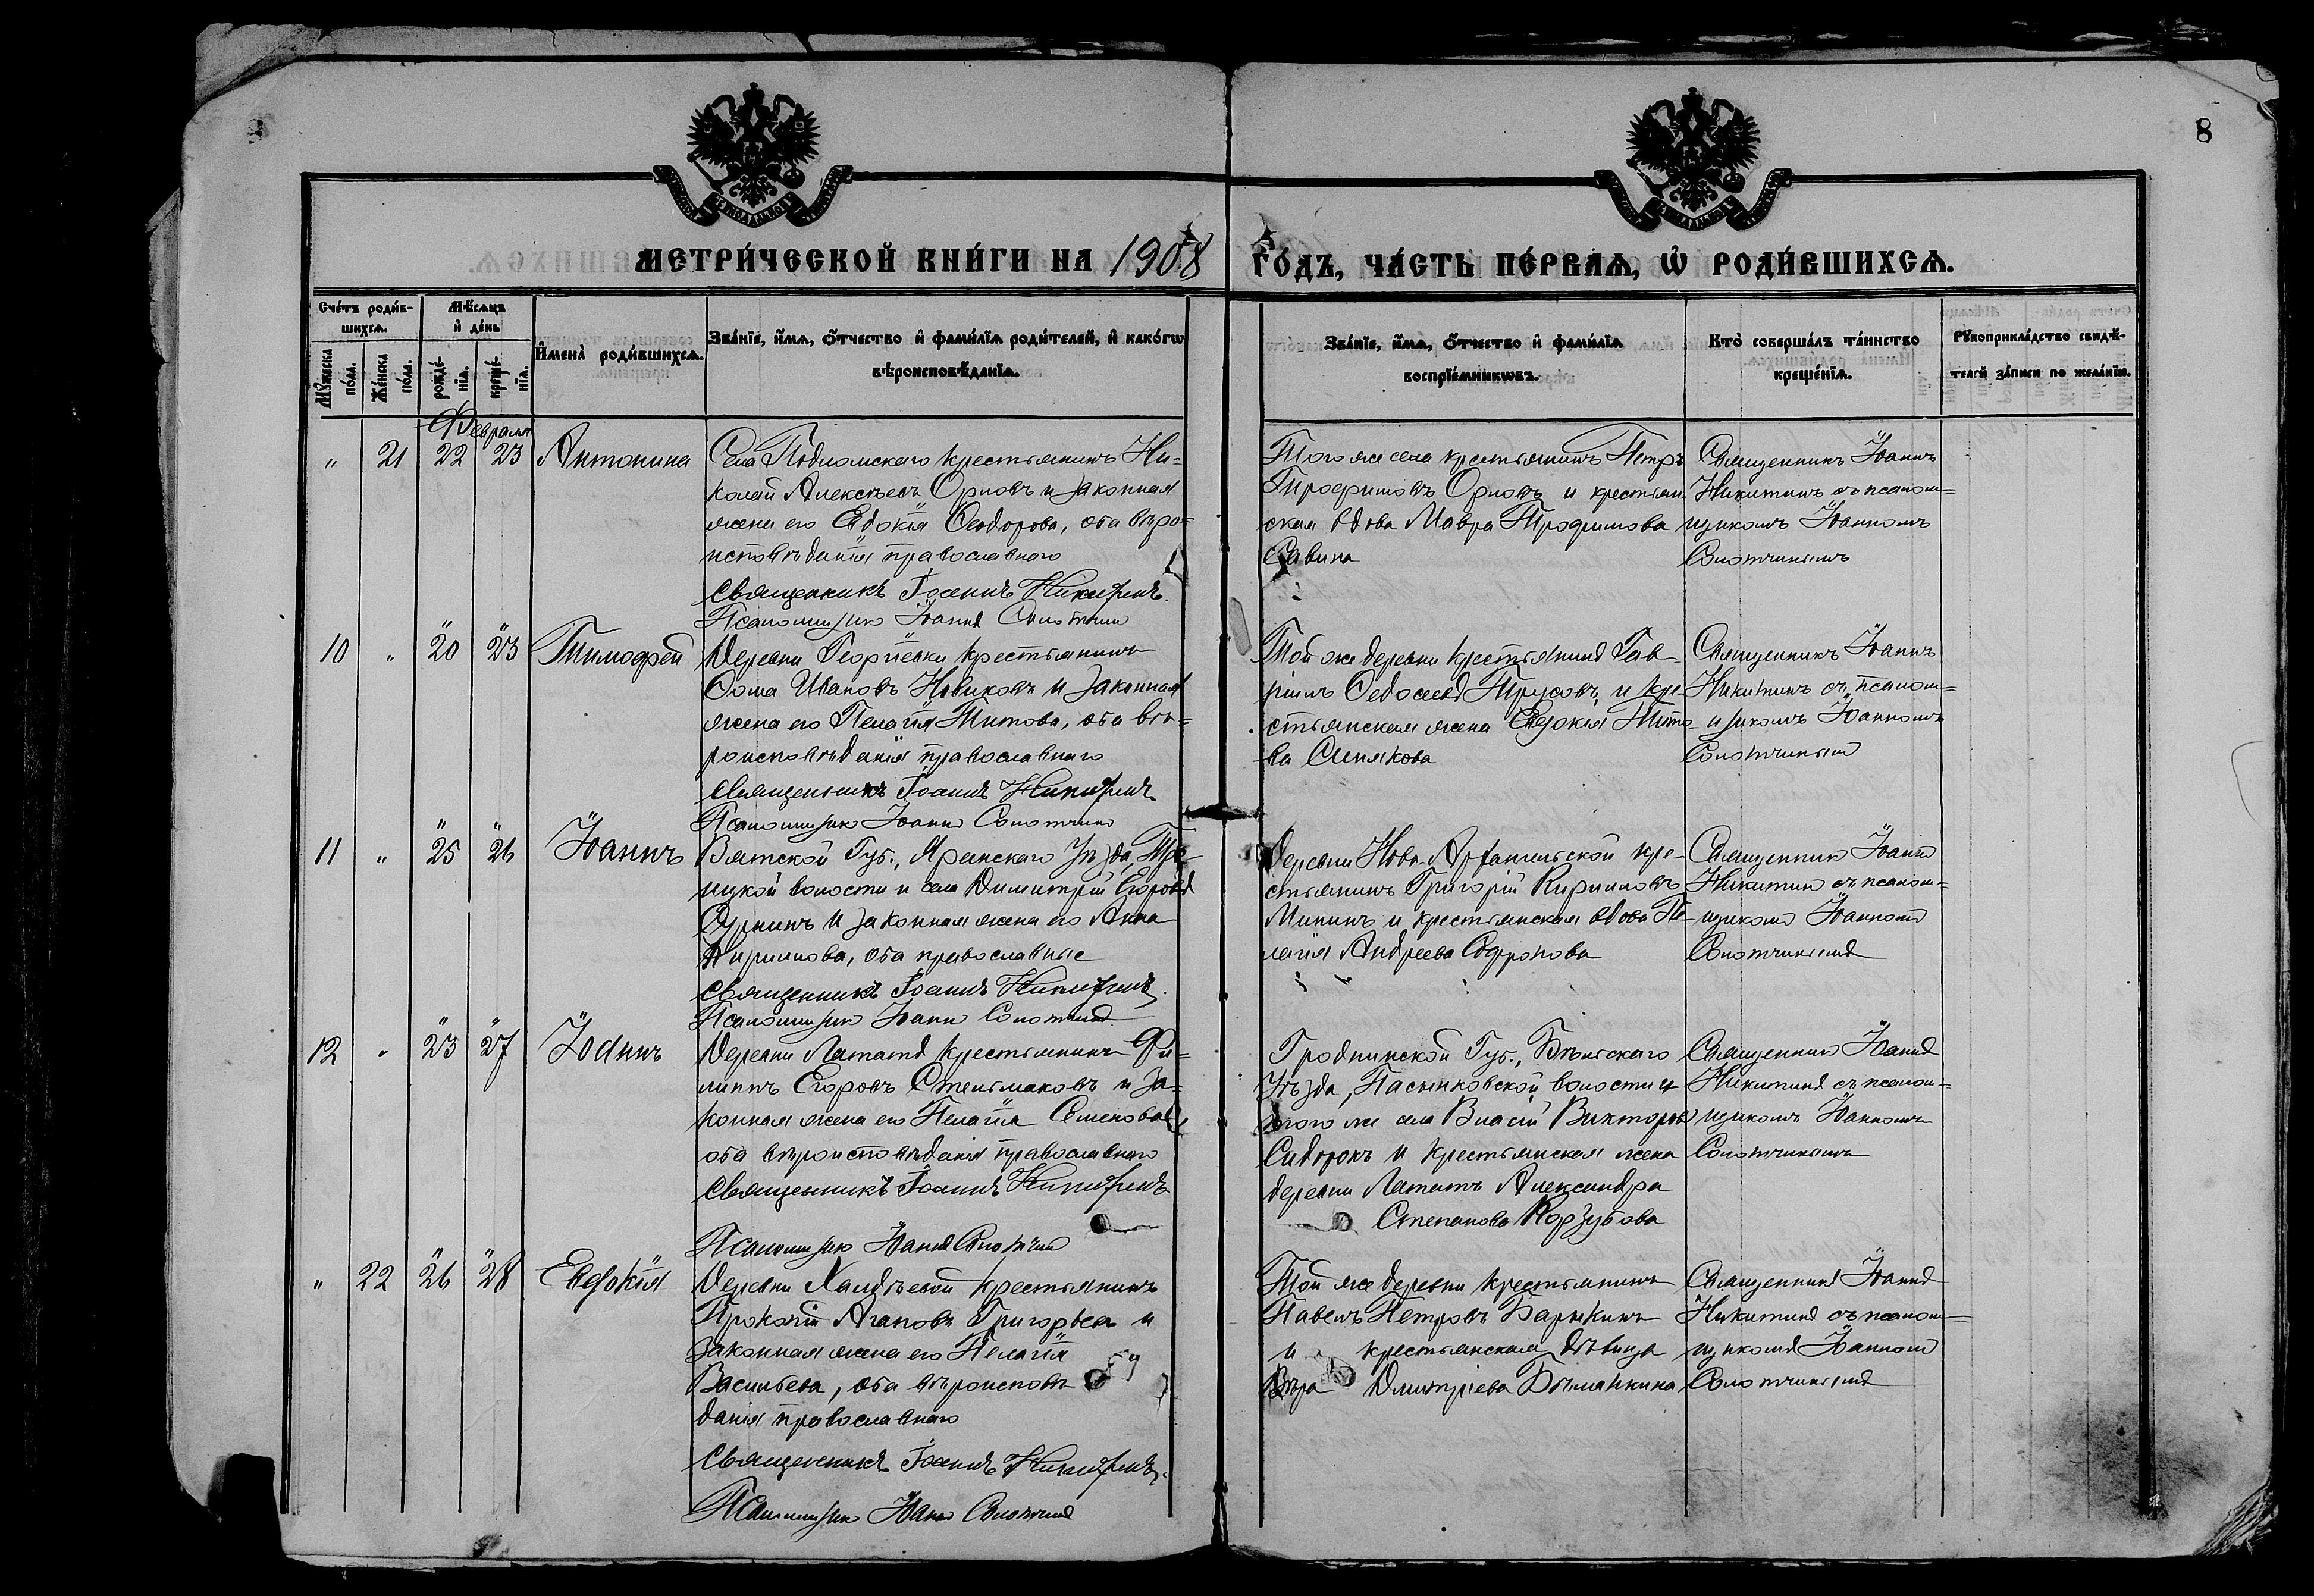 8
МЕТРИ́ЧЕСКОЙ КНИ́ГИ НА 1908 ГО́ДЪ, ЧА́СТЬ ПЕ́РВАЯ, Ѡ РОДИ́ВШИХСЯ.
Сче́тъ роди́в-
шихся.
Му́жеска по́ла.
Же́нска по́ла.
Мѣ́сяцъ
и де́нь
рожде́-
нїя.
креще́-
нїя.
Имена̀ роди́вшихся.
Зва́нїе, и́мя, о́тчество и фами́лїя роди́телей, и како́гѡ
вѣроисповѣ́данїя.
Зва́нїе, и́мя, о́тчество и фами́лїя
воспрїе́мникѡвъ.
Кто̀ соверша́лъ та́инство
креще́нїя.
Рукоприкла́дство свидѣ́-
телей за́писи по жела́нїю.
Февраля
" 21 22 23 Антонина
Села Подломскаго крестьянинъ Ни-
колай Алексѣевъ Орловъ и законная
жена его Евдокія Ѳеодорова, оба вѣро-
исповѣданія православнаго
Священникъ Іоаннъ Никитинъ.
Псаломщикъ Іоаннъ
Того же села крестьянинъ Петръ
Трофимовъ Орловъ и крестьян-
ская вдова Мавра Трофимова
Савина
Священникъ Іоаннъ
Никитинъ съ псалом-
щикомъ Іоанномъ
10 " 20 23 Тимофей
Деревни Георгіевки крестьянинъ
Ѳома Ивановъ Новиковъ и законная
жена его Пелагія Титова, оба вѣ-
роисповѣданія православнаго
Священникъ Іоаннъ Никитинъ
Псаломщикъ Іоаннъ
Той же деревни крестьянинъ Гав-
ріилъ Трусовъ и кре-
стьянская жена Евдокія Тито-
ва Синякова
Священникъ Іоаннъ
Никитинъ съ псалом-
щикомъ Іоанномъ
11 " 25 26 Іоаннъ
Вятской Губ., Яранскаго Уѣзда, Тро-
ицкой волости и села Димитрій Егоровъ
и законная жена его Анна
Кириллова, оба православные
Священникъ Іоаннъ Никитинъ.
Псаломщикъ Іоаннъ
Деревни Ново-Архангельской кре-
стьянинъ Григорій Кирилловъ
Мининъ и крестьянская вдова Пе-
лагія Андреева Софронова
Священникъ Іоаннъ
Никитинъ съ псалом-
щикомъ Іоанномъ
12 " 23 27 Іоаннъ
Деревни Лататъ крестьянинъ Фи-
липпъ Егоровъ Стельмаковъ и за-
конная жена его Пелагія Семенова,
оба вѣроисповѣданія православнаго
Священникъ Іоаннъ Никитинъ
Псаломщикъ Іоаннъ
Гродненской Губ., Бѣльскаго
Уѣзда, Пасынковской волости и
того же села Власій Викторовъ
Сидорокъ и крестьянская жена
деревни Лататъ Александра
Степанова Корзубова
Священникъ Іоаннъ
Никитинъ съ псалом-
щикомъ Іоанномъ
" 22 26 28 Евдокія
Деревни Халдѣевой крестьянинъ
Прокопій Агаповъ Григорьевъ и
законная жена его Пелагія
Васильева, оба вѣроисповѣ-
данія православнаго
Священникъ Іоаннъ Никитинъ.
Псаломщикъ Іоаннъ
Той же деревни крестьянинъ
Павелъ Петровъ Барыкинъ
и крестьянская дѣвица
Вѣра Дмитріева
Священникъ Іоаннъ
Никитинъ съ псалом-
щикомъ Іоанномъ